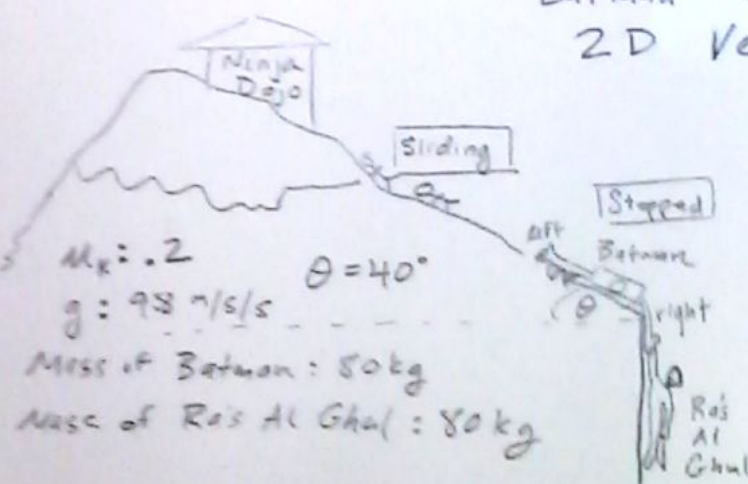 2D Ve
Ninja
Dojo
Sliding
Stopped
left
Batman
θ
right
μk: .2
θ = 40°
g: 9.8 m/s/s
Mass of Batman: 80kg
Mass of Ra's Al Ghul: 80kg
Ra's
Al
Ghul